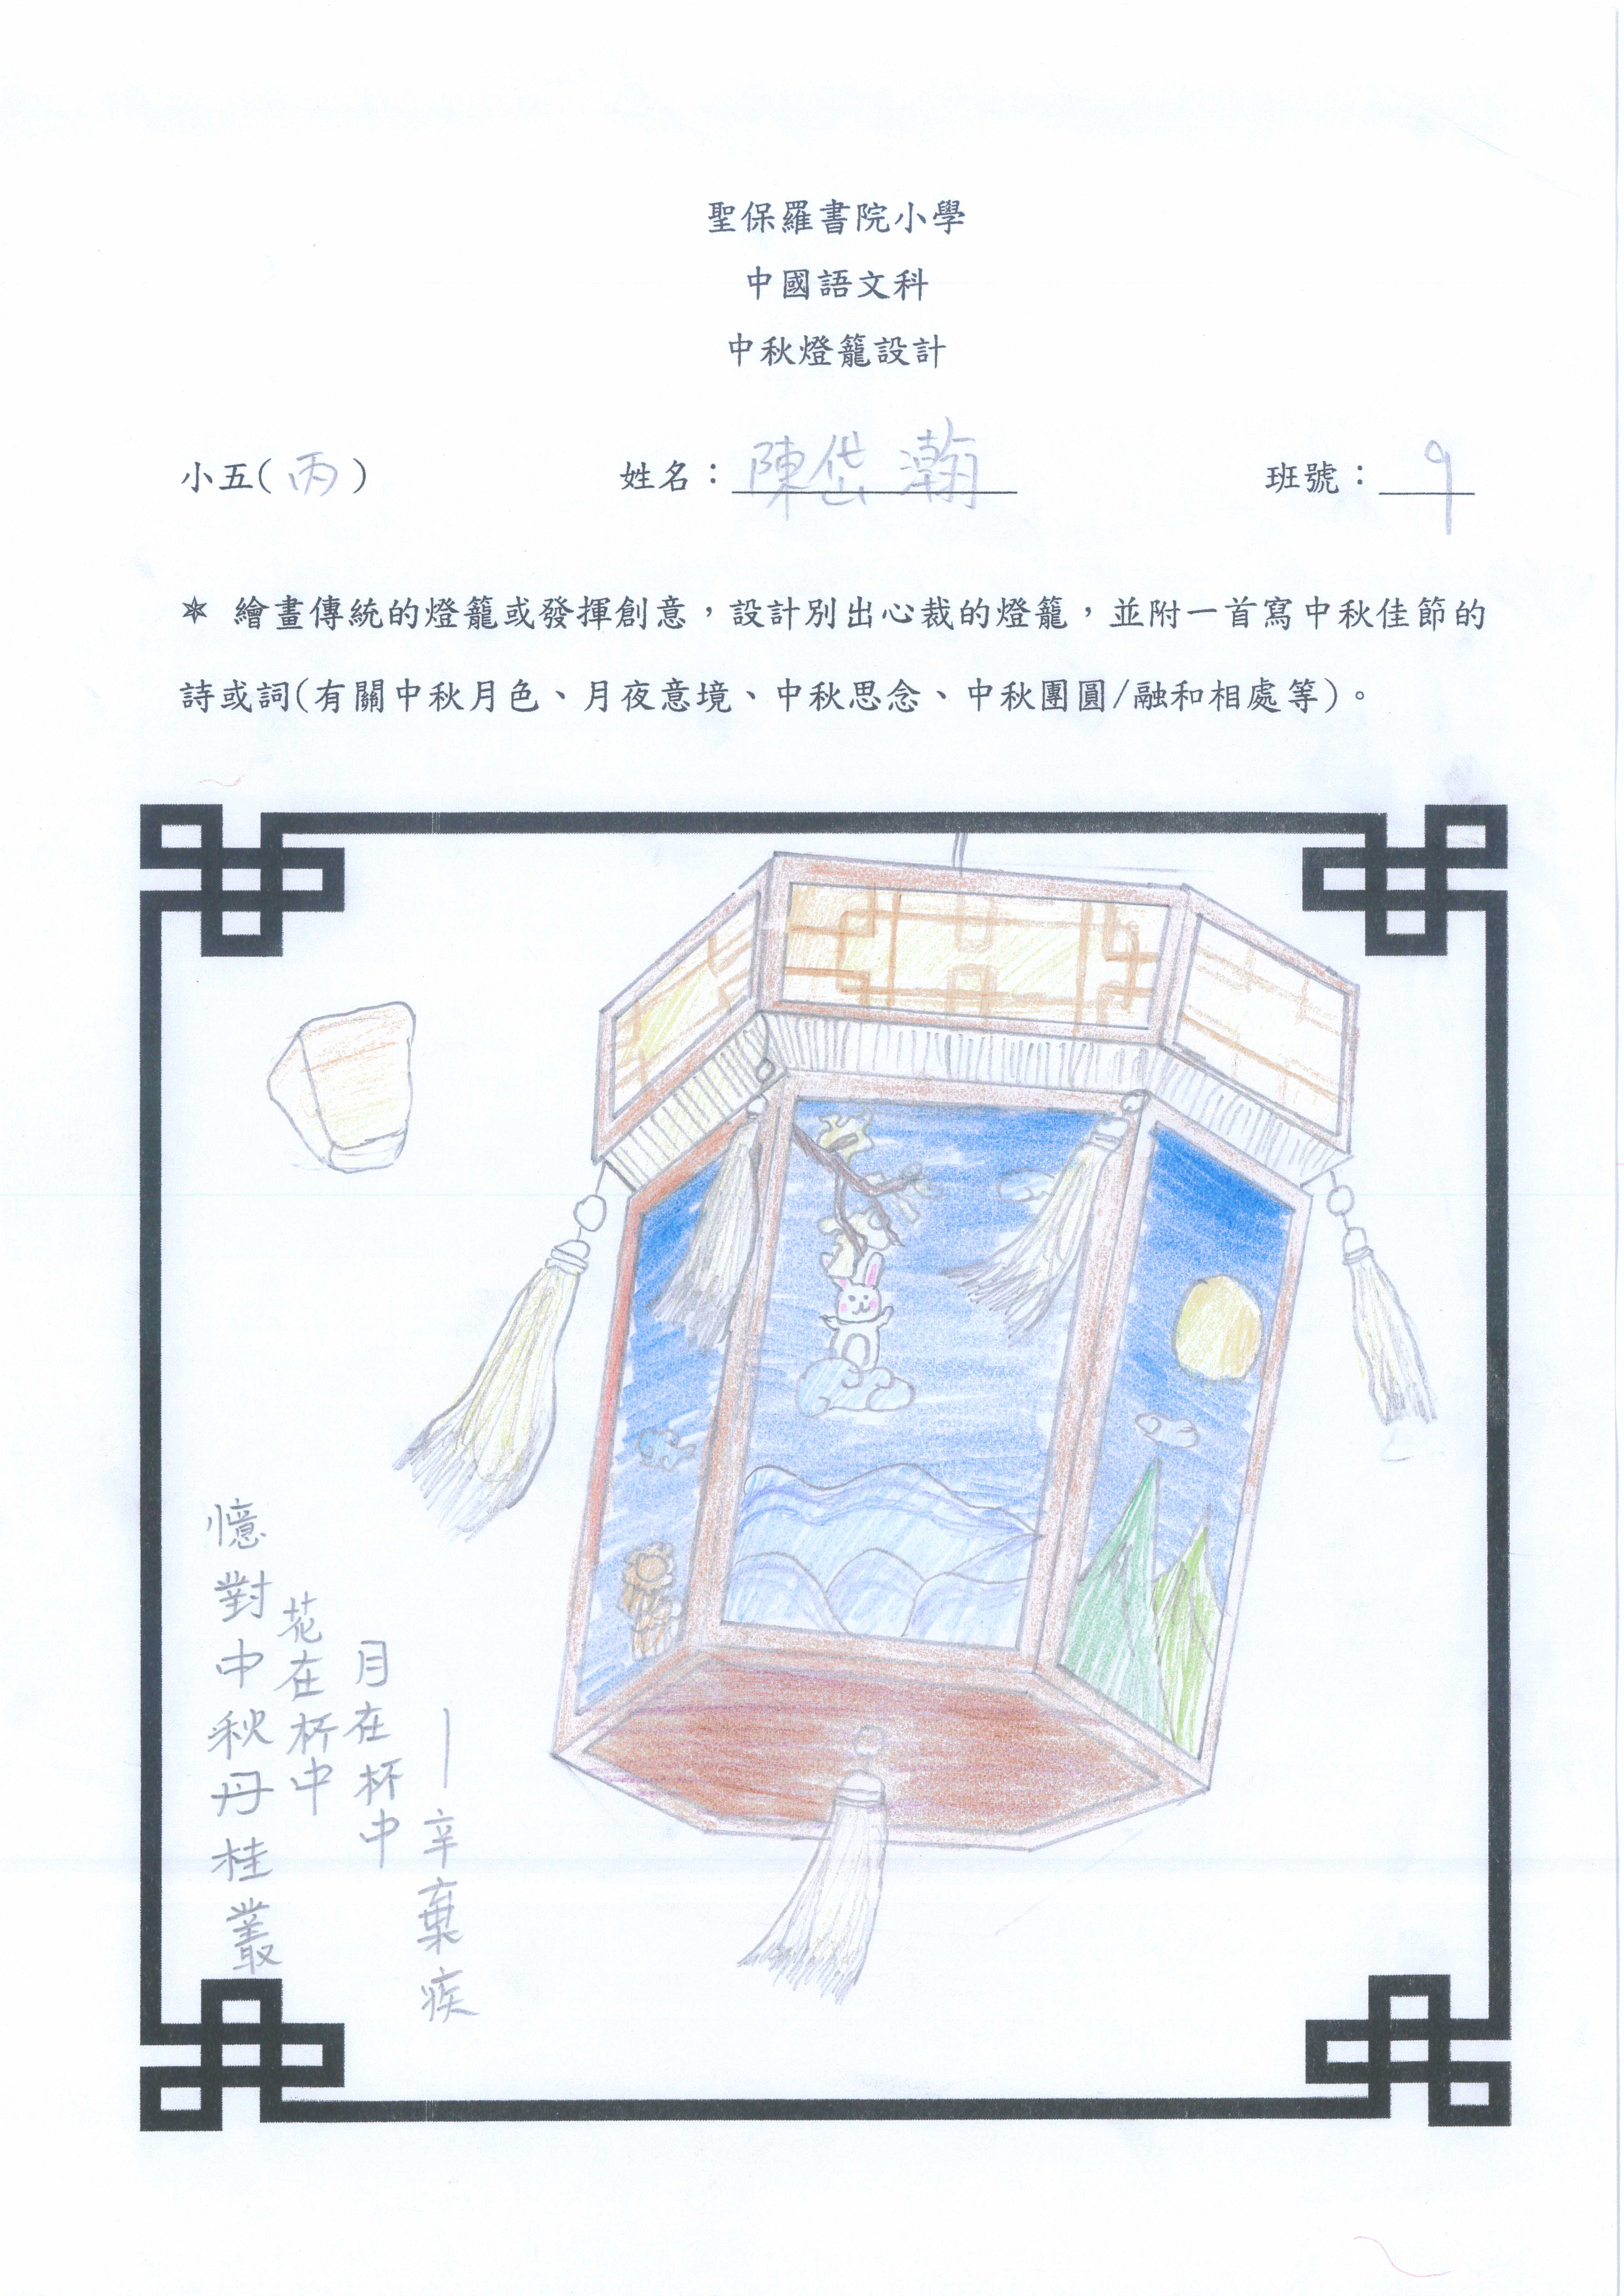 聖保羅書院小學
中國語文科
中秋燈籠設計
小五(丙) 姓名：陳岱瀚 班號：9
✶ 繪畫傳統的燈籠或發揮創意，設計別出心裁的燈籠，並附一首寫中秋佳節的
詩或詞(有關中秋月色、月夜意境、中秋思念、中秋團圓/融和相處等)。
憶對中秋丹桂叢
花在杯中
月在杯中
—辛棄疾